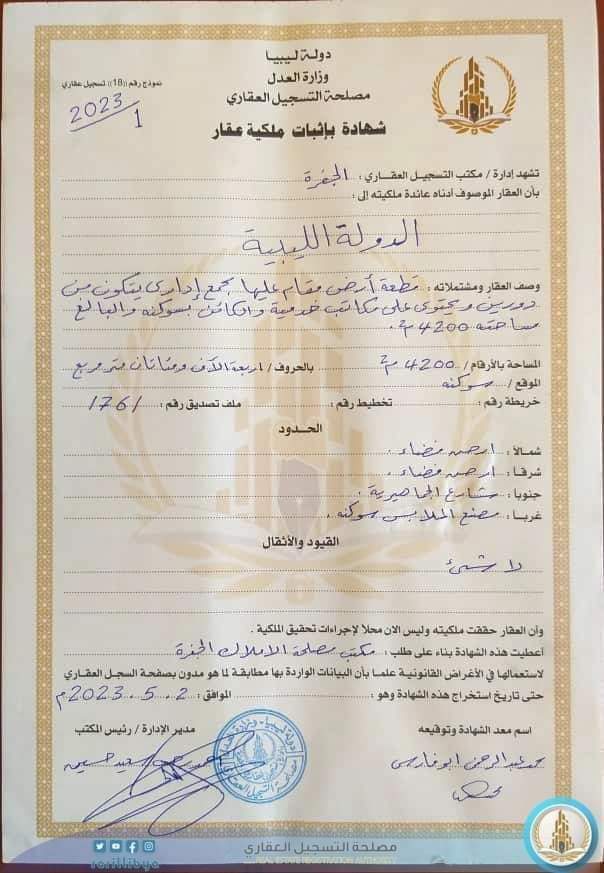 دولة ليبيا
وزارة العدل
مصلحة التسجيل العقاري
نموذج رقم ((18)) تسجيل عقاري
2023/1
شهادة بإثبات ملكية عقار
تشهد إدارة / مكتب التسجيل العقاري : الجفرة
بأن العقار الموصوف أدناه عائدة ملكيته إلى :
الدولة الليبية
وصف العقار ومشتملاته : قطعة أرض مقام عليها مجمع إداري يتكون من
دورين ويحتوي على مكاتب خدمية بسوكنه والبالغ
مساحته 4200 م2 .
المساحة بالأرقام / 4200 م2 بالحروف / اربعة الآف ومئاتان متر مربع
الموقع / سوكنه
خريطة رقم : تخطيط رقم : ملف تصديق رقم : 1761
الحدود
شمالاً : ارض فضاء .
شرقا : ارض فضاء .
جنوبا : شارع الجماهيرية .
غربا : مصنع الملابس سوكنه .
القيود والأثقال
لا شئ
وأن العقار حققت ملكيته وليس الان محلاً لإجراءات تحقيق الملكية .
أعطيت هذه الشهادة بناء على طلب : مكتب مصلحة الاملاك الجفرة
لاستعمالها في الأغراض القانونية علما بأن البيانات الواردة بها مطابقة لما هو مدون بصفحة السجل العقاري
حتى تاريخ استخراج هذه الشهادة وهو : الموافق : 2 . 5 . 2023 م
اسم معد الشهادة وتوقيعه
مدير الإدارة / رئيس المكتب
محمد عبد الرحمن ابوفارس
مصلحة التسجيل العقاري
REAL ESTATE REGISTRATION AUTHORITY
rerlibya